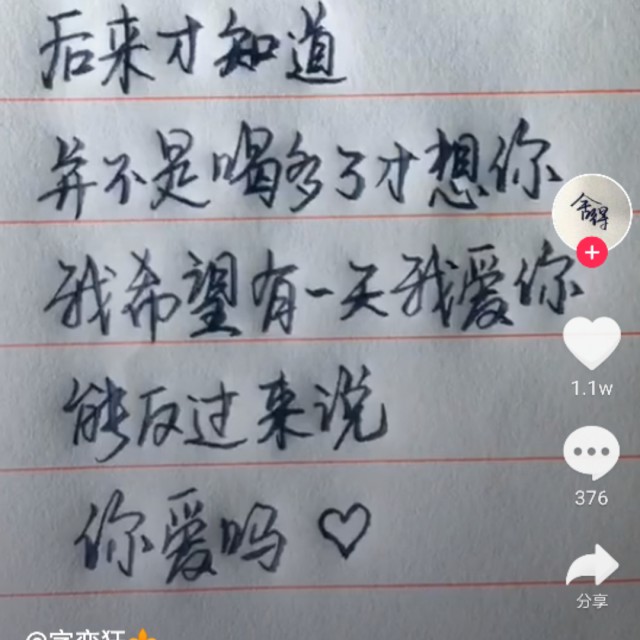 后来才知道
并不是喝多了才想你
我希望有一天我爱你
能反过来说
你爱吗♡
舍得
1.1w
376
分享